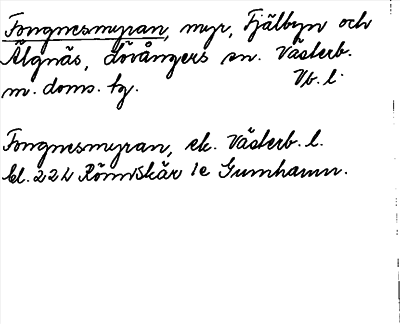 Fongnesmyran, myr, Fjälbyn och
Älgnäs, Lövångers sn. Västerb.
m. doms. tg. Vb. l.
Fongnesmyran, ek. Västerb. l.
bl. 22 L Rönnskär 1e Gumhamn.